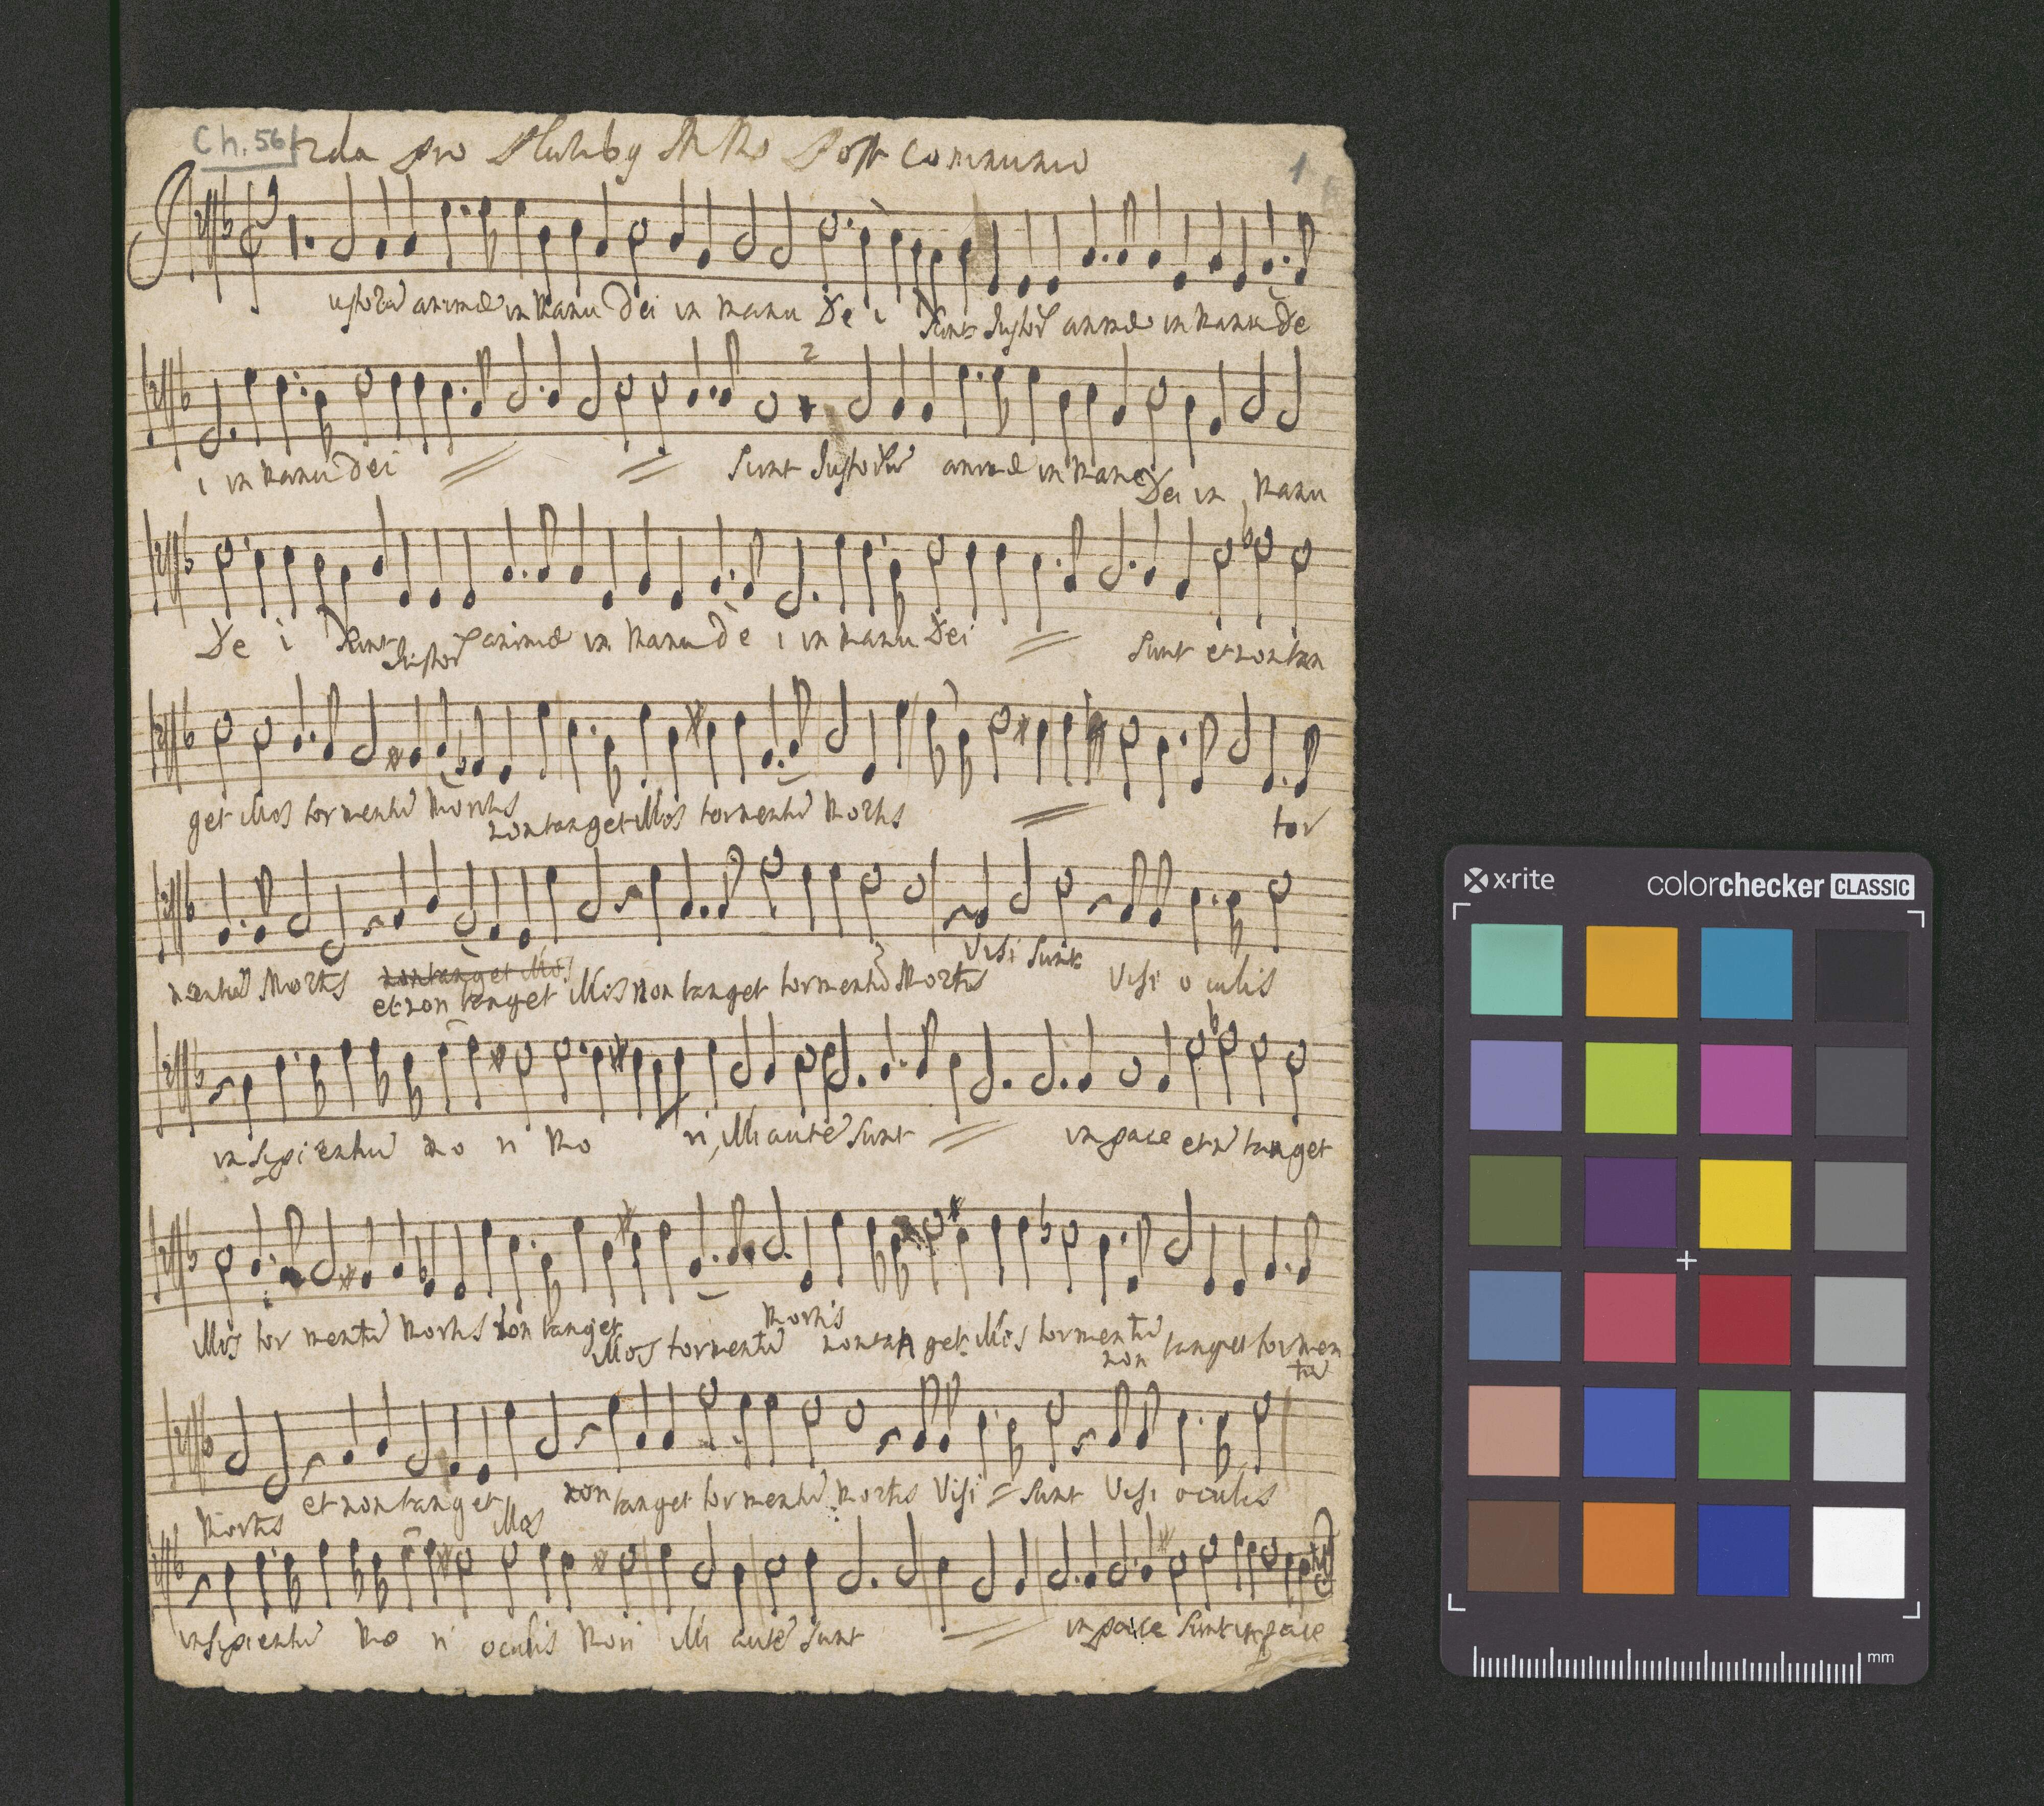 Ch. 56
pro Post Communio
1
ustorũ animæ in Manu Dei in Manu De i Sunt Justor animæ in Manu De
2
i in Manu Dei Sunt Justorũ animæ in Manu Dei in Manu
De i Sunt Justor animæ in Manu De i in Manu Dei Sunt et non tan
get illos tormentũ Mortis non tanget illos tormentũ Mortis tor
mentũ Mortis non tanget illos
et non tanget illos non tanget tormentũ Mortis Visi Sunt Visi oculis
insipientiũ mo ri Mo ri, illi autẽ Sunt in pace et ñ tanget
illos tor mentũ Mortis Non tanget illos tormentũ Mortis non tan get illos tormentũ non tanget tormen
tũ
Mortis et non tanget illos non tanget tor mentũ Mortis Visi Sunt Visi oculis
insipientiũ Mo ri oculis Mori illi autẽ Sunt in pace Sunt in pace
x-rite
colorchecker CLASSIC
mm